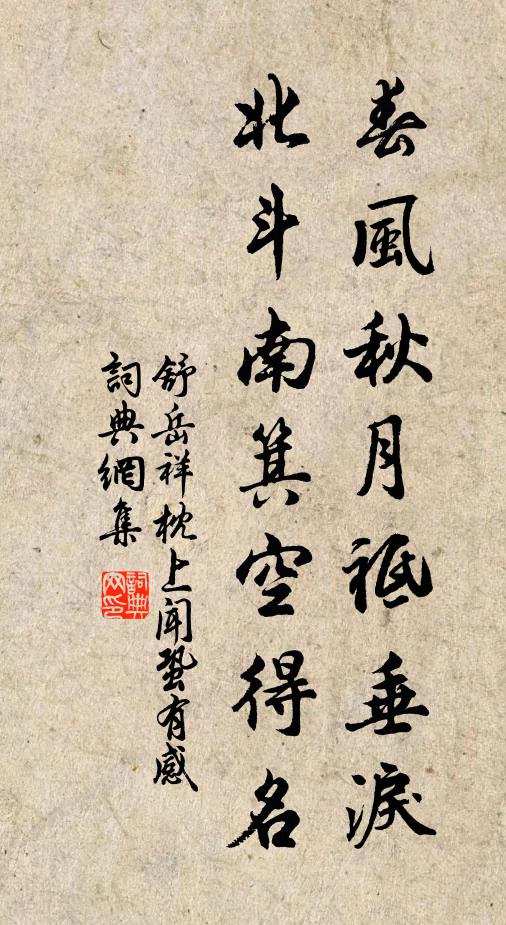 春風秋月祗垂淚
北斗南箕空得名
舒岳祥枕上聞蛩有感
詞典網集
詞典网印